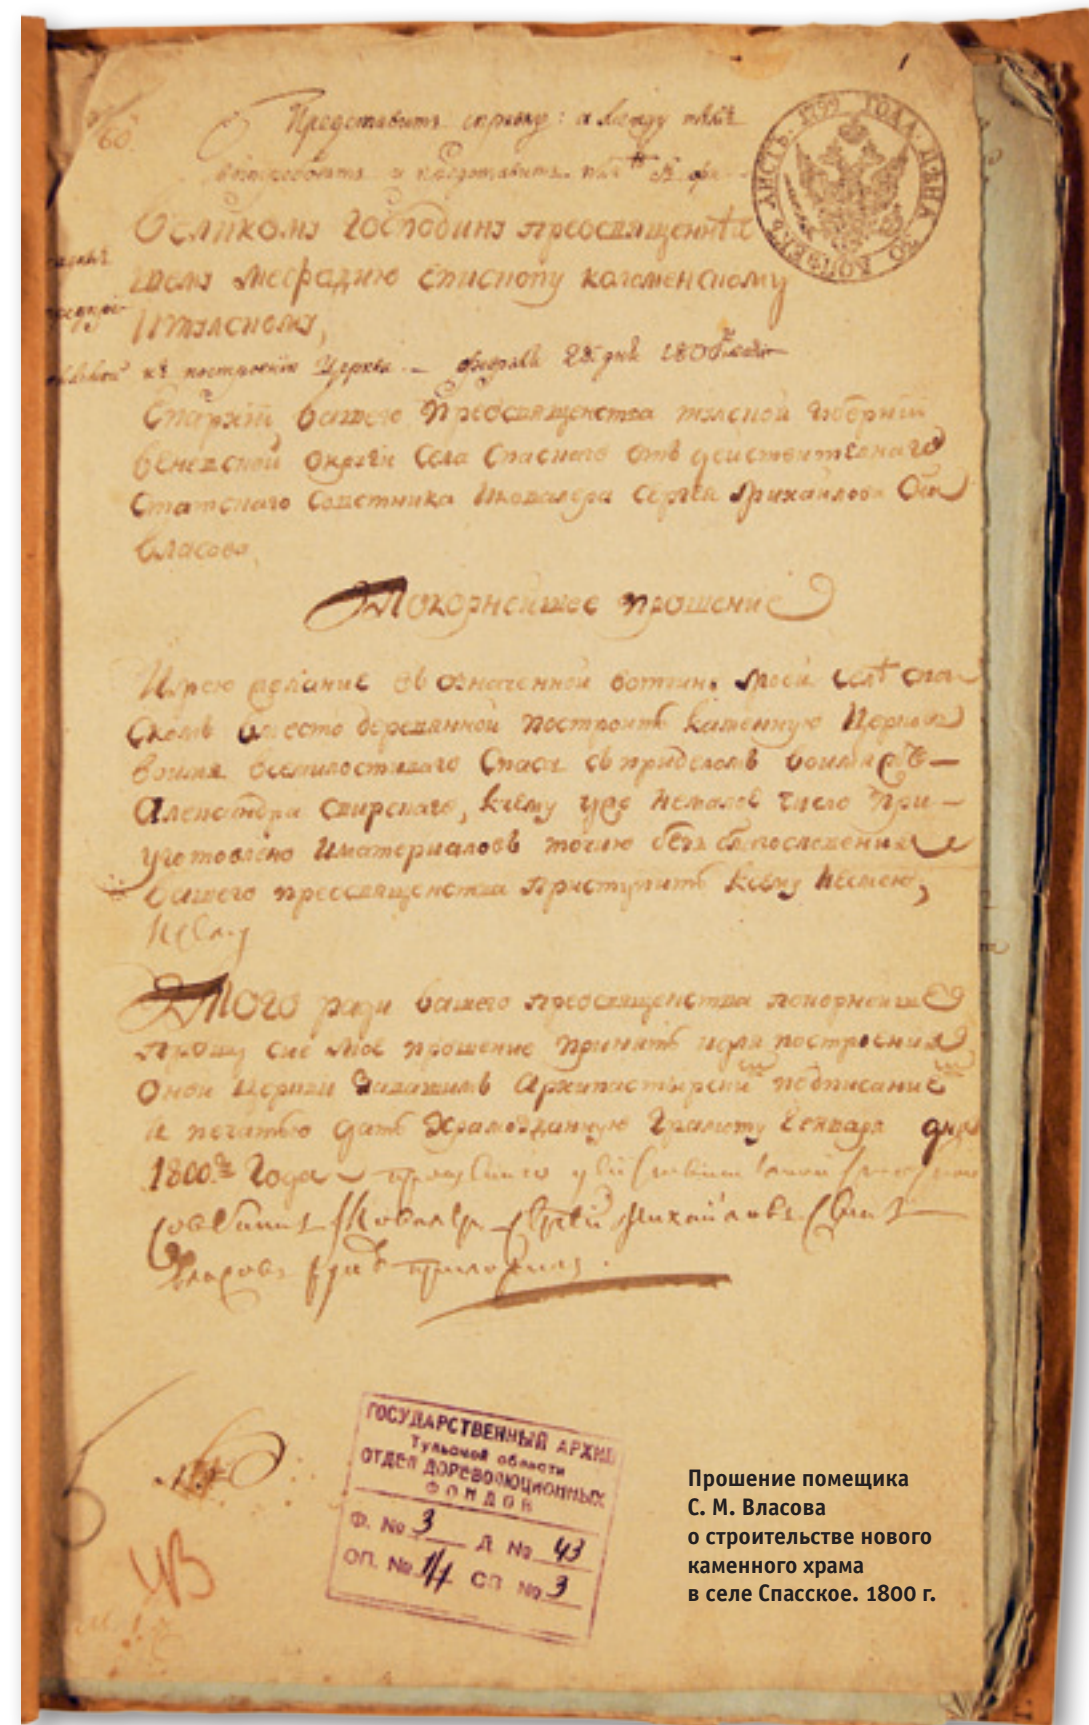 1
60
Представить справку: а между тѣмъ
вытребовать и представить
1799 ГОДА. ЦѢНА 20 КОПѢЕКЪ ЛИСТЪ.
Великому Господину преосвященнѣй
шему Мефодию Епископу коломенскому
Итулскому,
къ построению Церкви — февраля 28 дня 1800 года
Епархiй вашего Преосвященства тулской Губернiи
веневской округи Села Спаскаго отъ действителнаго
Статскаго Советника Икавалера Сергея Михайлова Сна
Власова,
Покорнейшее прошение
Имею желание въ означенной вотчине моей селѣ Спа
скомъ вместо деревянной построить каменную Церковь
воимя всемилостиваго Спаса съ приделомъ воимя
Александра Свирскаго, кчему уже немалое число При-
уготовлено Иматериаловъ точию безъ благословения
вашего преосвященства приступить ксему несмею,
Ксему
Того ради вашего преосвященства покорнейше
прошу сие мое прошение принять идля построения
Оной Церкви Завашимъ Архипастырским подписание
и печатью дать Храмозданную Грамоту Генваря дня
1800 Года — прошению действителной статской
советник Икавалер Сергей Михайловъ Сынъ
Власовъ руку приложилъ.
ГОСУДАРСТВЕННЫЙ АРХИВ
Тульской области
ОТДЕЛ ДОРЕВОЛЮЦИОННЫХ
ФОНДОВ
Ф. № 3 Д. № 43
ОП. № 1/1 СП № 3
Прошение помещика
С. М. Власова
о строительстве нового
каменного храма
в селе Спасское. 1800 г.